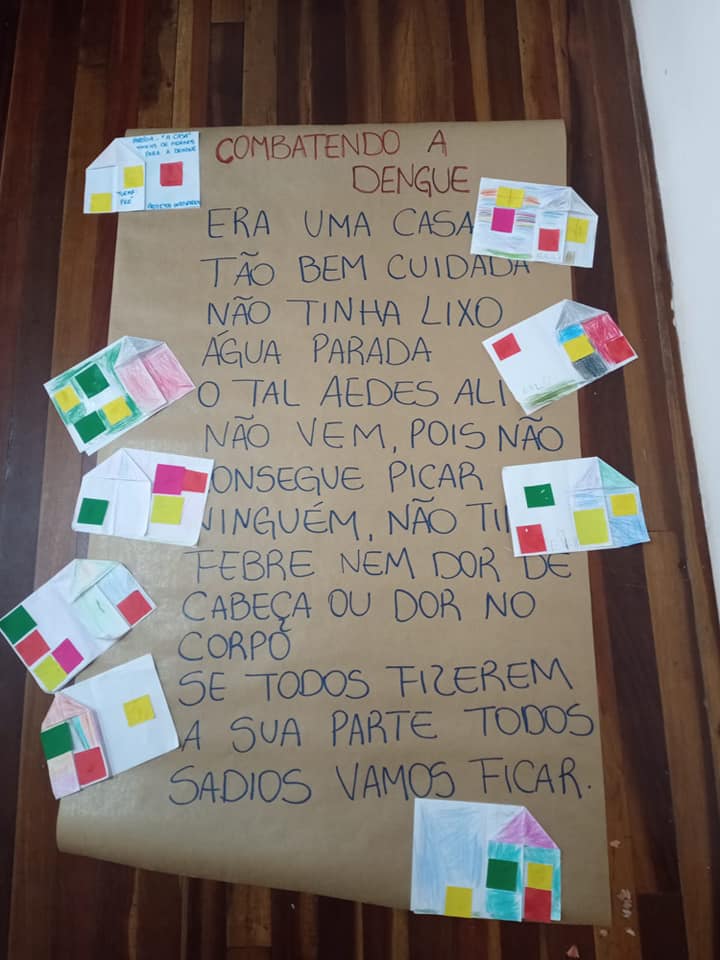 COMBATENDO A
DENGUE
ERA UMA CASA
TÃO BEM CUIDADA
NÃO TINHA LIXO
ÁGUA PARADA
O TAL AEDES ALI
NÃO VEM, POIS NÃO
ONSEGUE PICAR
NINGUÉM, NÃO TI
FEBRE NEM DOR DE
CABEÇA OU DOR NO
CORPO
SE TODOS FIZEREM
A SUA PARTE TODOS
SADIOS VAMOS FICAR.
"A CASA"
DE
PARA A DENGUE
TURMA
PRÉ